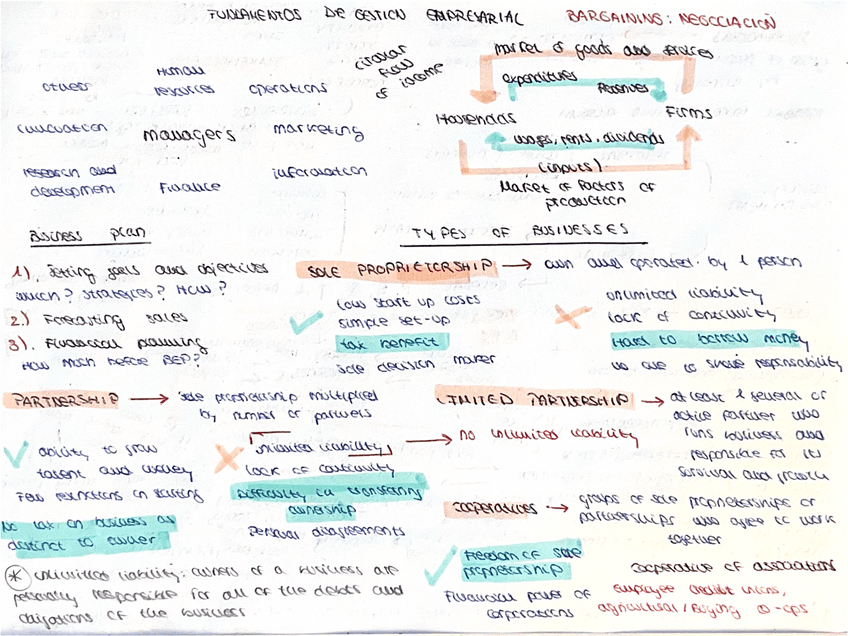 FUNDAMENTOS DE GESTIÓN EMPRESARIAL
BARGAINING: NEGOCIACIÓN
others
Human resources
operations
innovation
managers
marketing
research and development
finance
information
circular flow of income
Market of goods and services
expenditures
Revenues
Households
Firms
wages, rents, dividends
(inputs)
Market of factors of
production
Business plan
1) Setting goals and objectives
which? strategies? How?
2) Forecasting sales
3) Financial planning
How much before BEP?
TYPES OF BUSINESSES
SOLE PROPRIETORSHIP → own and operated by 1 person
low start up costs
simple set-up
tax benefit
sole decision maker
unlimited liability
lack of continuity
Hard to borrow money
no one to share responsability
PARTNERSHIP → sole proprietorship multiplied
by number of partners
ability to grow
talent and money
Few restrictions on starting
No tax on business as
distinct to owner
unlimited liability → no unlimited liability
lack of continuity
Difficulty in transfering
ownership
Personal disagreements
LIMITED PARTNERSHIP → at least 1 general or
active partner who
runs business and
responsible for its
survival and growth
cooperatives → groups of sole proprietorships or
partnerships who agree to work
together
Freedom of sole
proprietorship
Financial power of
corporations
cooperative of associations
employee credit unions,
agricultural / Buying co-ops
* unlimited liability: owners of a business are
personally responsible for all of the debts and
obligations of the business